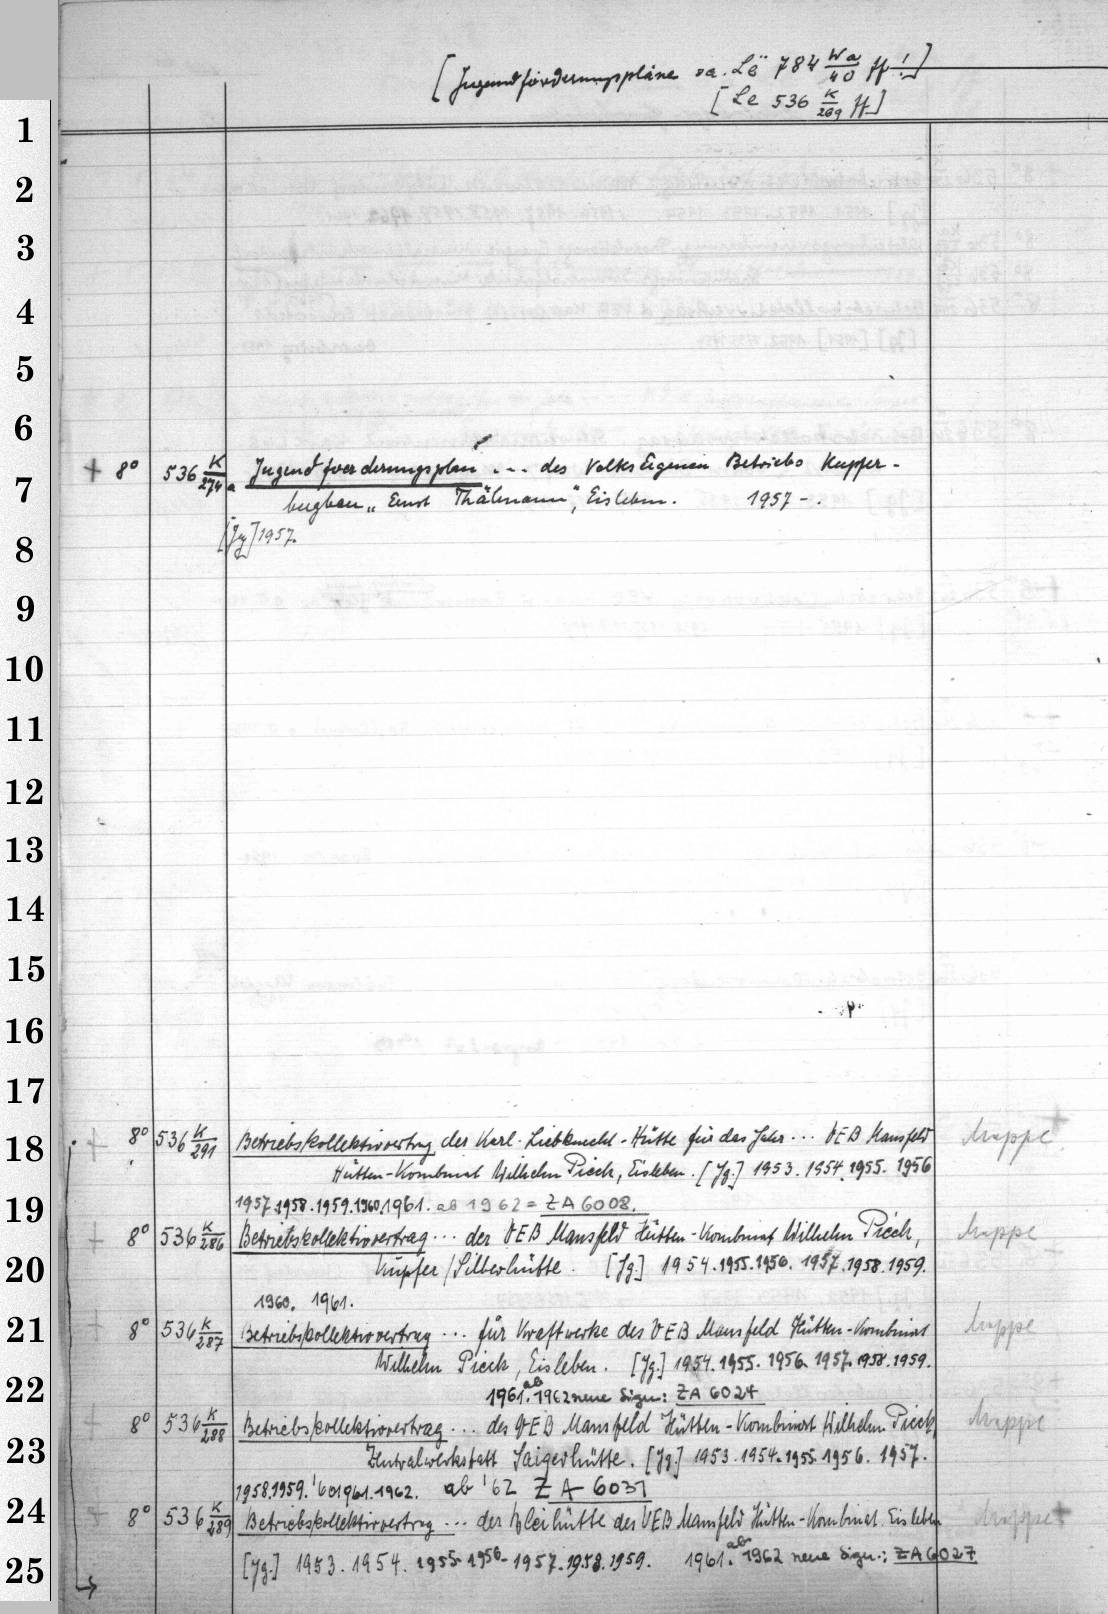 [Jugendförderungspläne sa. Lë 784 Wa/40 ff!]
[Le 536 K/269 ff]
1
2
3
4
5
6
7
+ 8° 536 K/274a Jugendfoerderungsplan ... des VolksEigenen Betriebs Kupfer-
bergbau "Ernst Thälmann", Eisleben. 1957-.
[Jg] 1957.
8
9
10
11
12
13
14
15
16
17
18
+ 8° 536 K/291 Betriebskollektivvertrag der Karl-Liebknecht-Hütte für das Jahr ... VEB Mansfeld Mappe
Hütten-Kombinat Wilhelm Pieck, Eisleben. [Jg.] 1953. 1954. 1955. 1956
19
1957.1958.1959.1960.1961. ab 1962 = ZA 6008.
+ 8° 536 K/286 Betriebskollektivvertrag ... der VEB Mansfeld Hütten-Kombinat Wilhelm Pieck, Mappe
20
Kupfer/Silberhütte. [Jg.] 1954. 1955. 1956. 1957. 1958. 1959.
1960. 1961.
21
+ 8° 536 K/287 Betriebskollektivvertrag ... für Kraftwerke des VEB Mansfeld Hütten-Kombinat Mappe
Wilhelm Pieck, Eisleben. [Jg.] 1954. 1955. 1956. 1957. 1958. 1959.
22
1961. ab 1962 neue Sign.: ZA 6024
8° 536 K/288 Betriebskollektivvertrag ... des VEB Mansfeld Hütten-Kombinat Wilhelm Pieck, Mappe
23
Zentralwerkstatt Saigerhütte. [Jg.] 1953. 1954. 1955. 1956. 1957.
1958.1959. '60 1961. 1962. ab '62 ZA 6031
24
8° 536 K/289 Betriebskollektivvertrag ... der Bleihütte des VEB Mansfeld Hütten-Kombinat Eisleben Mappe
25
[Jg.] 1953. 1954. 1955. 1956. 1957. 1958. 1959. 1961. ab 1962 neue Sign.: ZA 6027